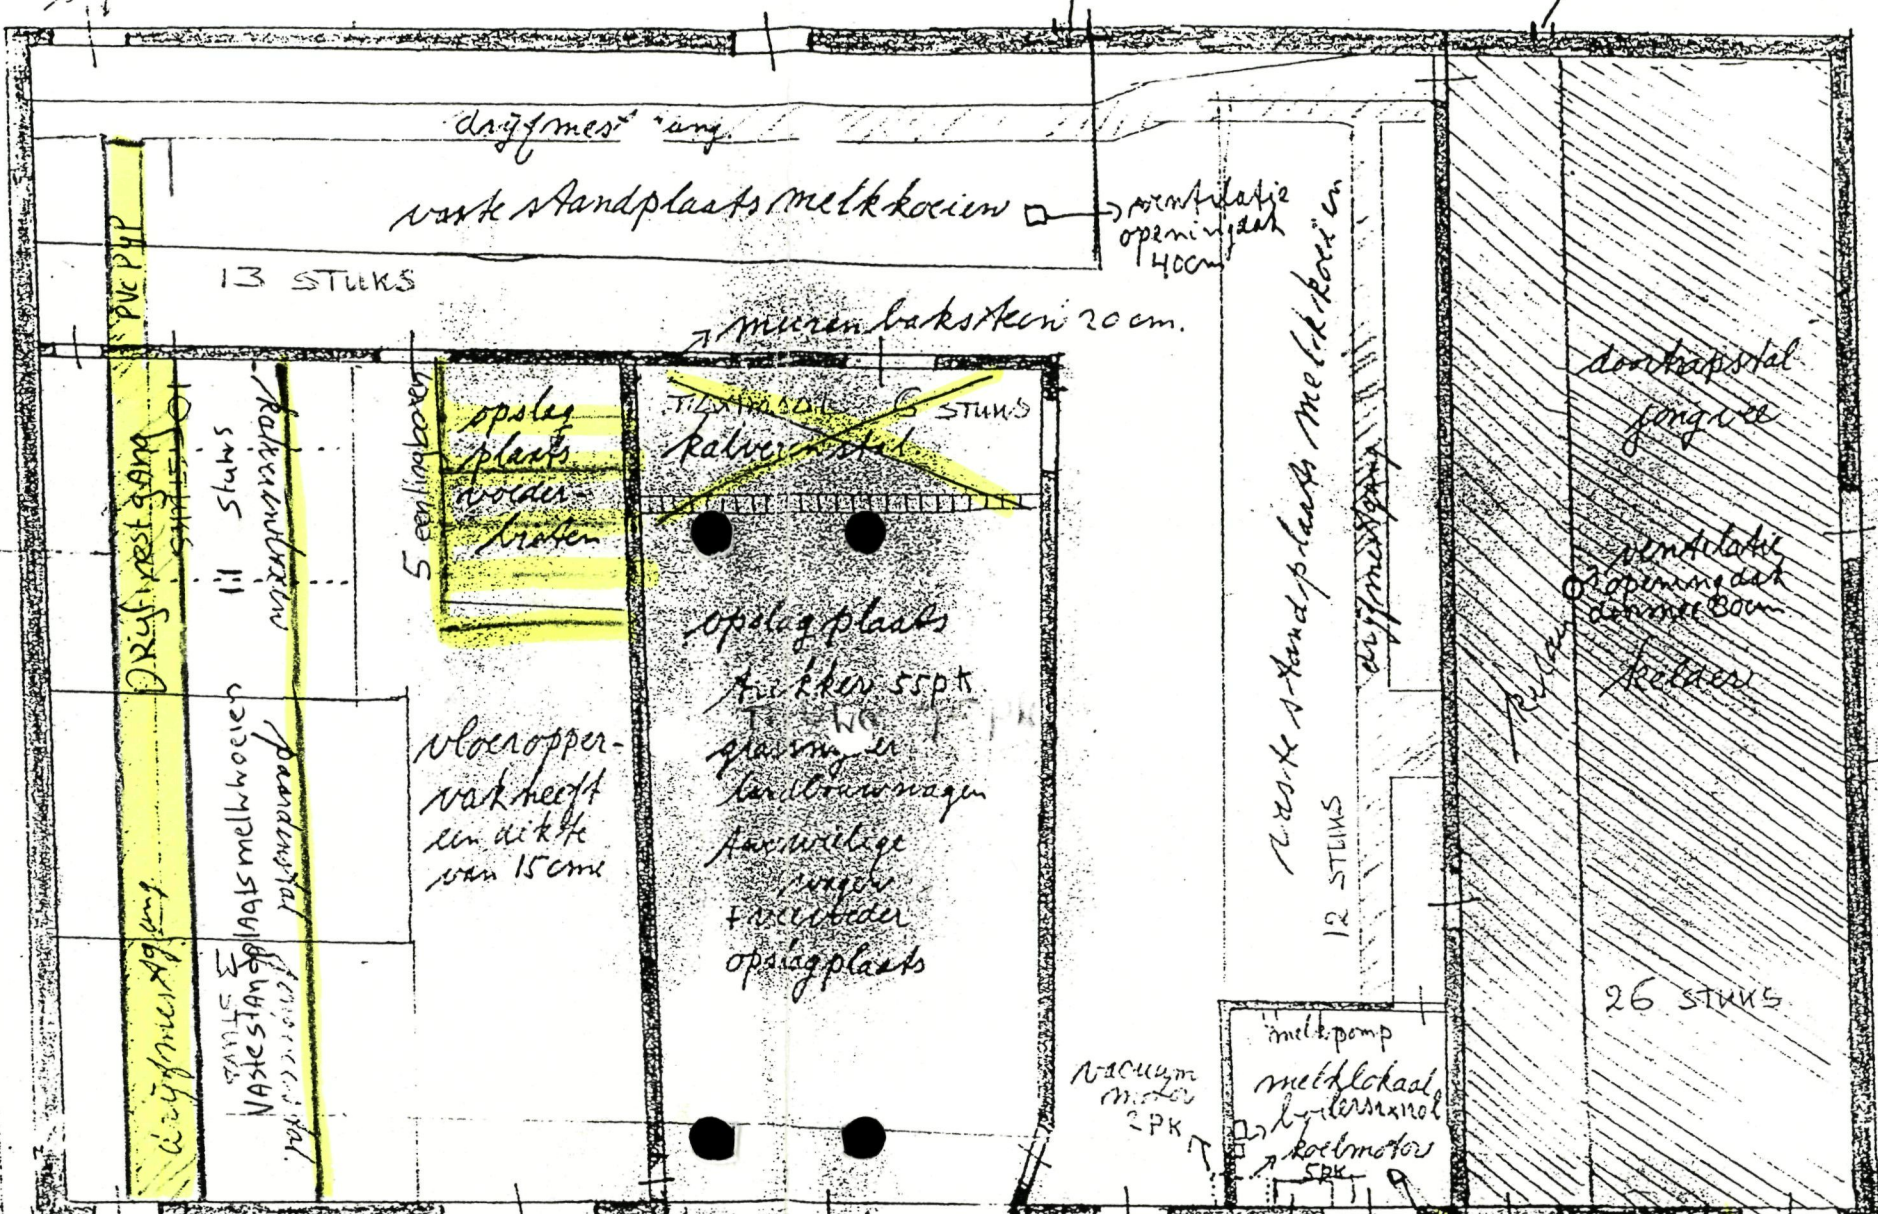 drijfmest
vaste standplaats melkkoeien
ventilatie
opening dak
40cm
13 STUKS
PVC PYP
muren baksteen 20 cm.
DRijfmestgang
11 stuks
kalverstalen
5 eenlingboxen
opslag
plaats
voeder-
6 STUKS
kalverstal
opslagplaats
trekker 55pk
grasmaaier
landbouwwagen
wagen
+ veevoeder
opslagplaats
vloeropper-
vlak heeft
een dikte
van 15cm
drijfmestgang
paardenstal
VASTE STANDPLAATS melkkoeien
vaste standplaats melkkoeien
drijfmestgang
12 STUKS
doortrapstal
jongvee
ventilatie
opening dak
80cm
kelder
26 STUKS
melkpomp
melklokaal
koelmotor
5PK
vacuum
motor
2PK